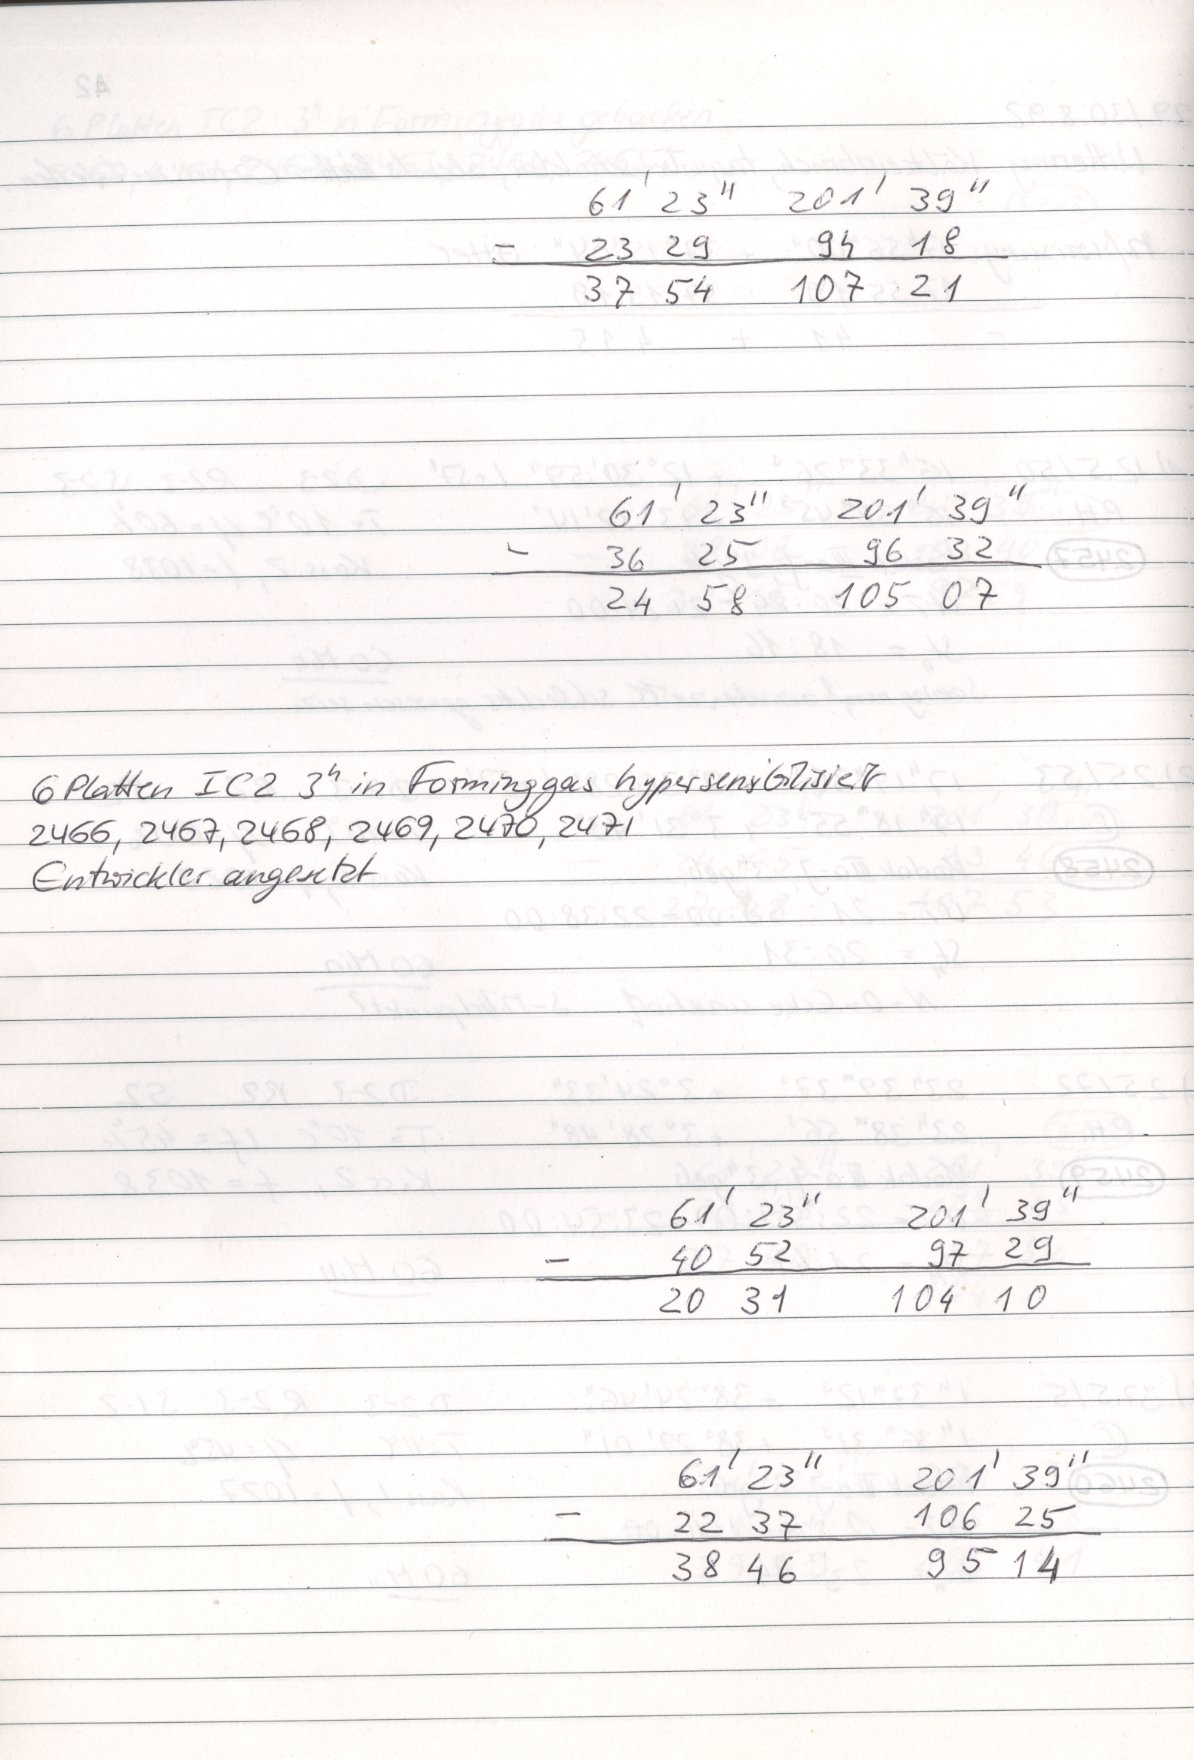 61' 23" 201' 39"
- 23 29 94 18
37 54 107 21
61' 23" 201' 39"
- 36 25 96 32
24 58 105 07
6 Platten IC2 3h in Forminggas hypersensibilisiert
2466, 2467, 2468, 2469, 2470, 2471
Entwickler angesetzt
61' 23" 201' 39"
- 40 52 97 29
20 31 104 10
61' 23" 201' 39"
- 22 37 106 25
38 46 95 14